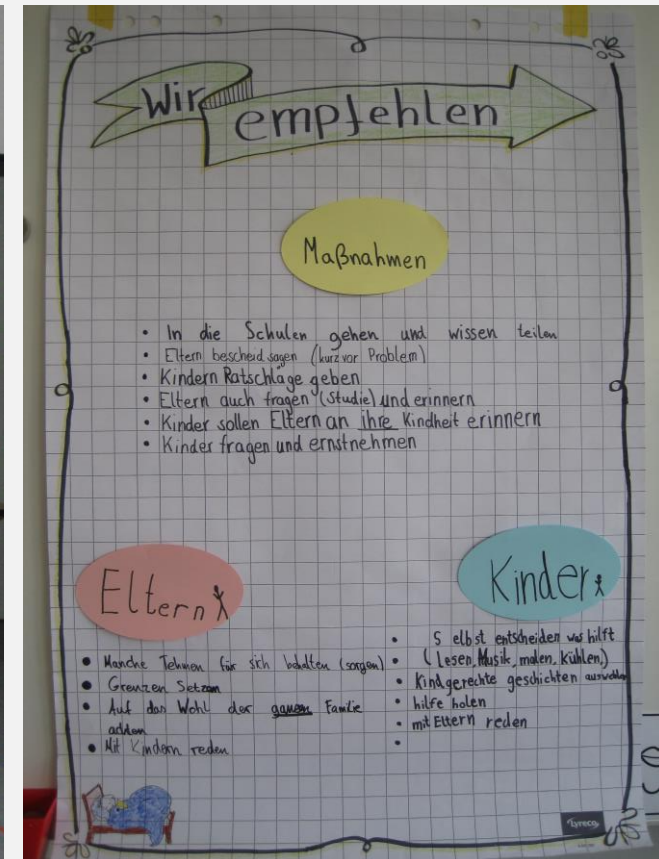 Wir empfehlen
Maßnahmen
• In die Schulen gehen und wissen teilen
• Eltern bescheid sagen (kurz vor Problem)
• Kindern Ratschläge geben
• Eltern auch fragen (Studie) und erinnern
• Kinder sollen Eltern an ihre Kindheit erinnern
• Kinder fragen und ernstnehmen
Eltern
• Manche für sich behalten (sorgen)
• Grenzen Setzen
• Auf das Wohl der ganzen Familie
• Mit Kindern reden
Kinder
• Selbst entscheiden was hilft
• (Lesen, Musik, malen, Kühlen,)
• Kindgerechte geschichten auswählen
• hilfe holen
• mit Eltern reden
•